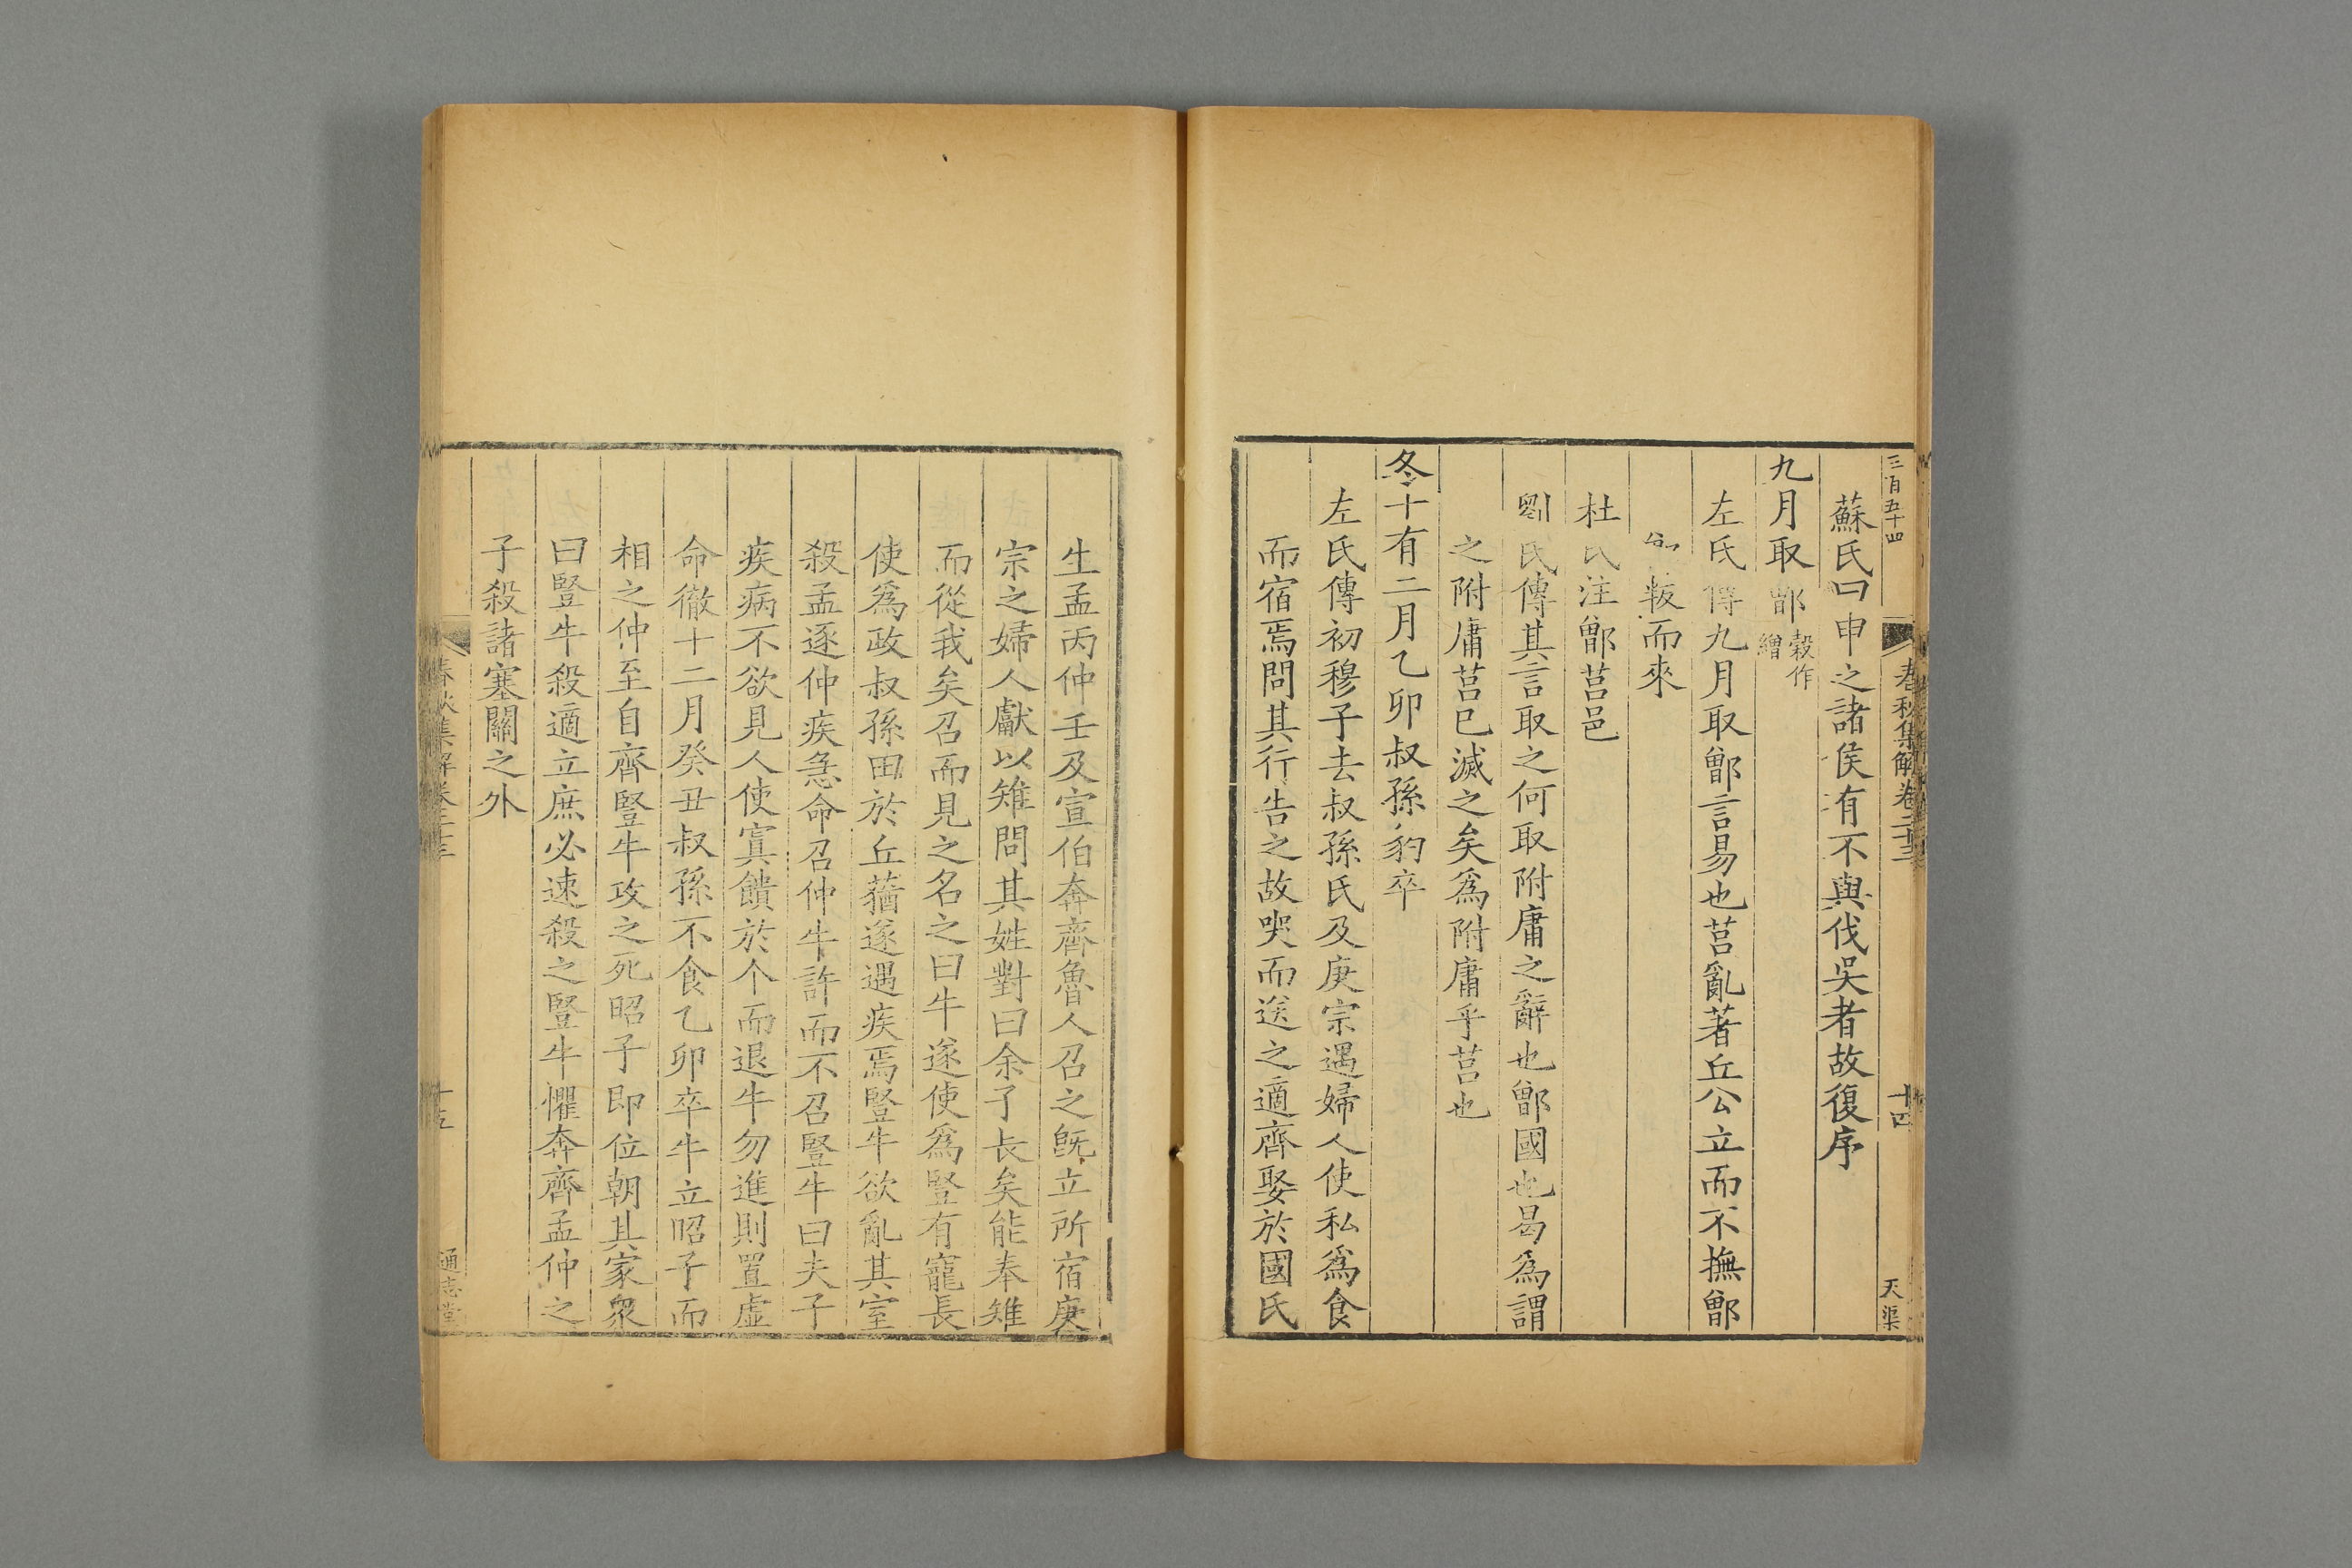 三百五十四
春秋集解卷二十三
十四
天渠
蘇氏曰申之諸侯有不與伐吳者故復序
九月取鄫穀作繒
左氏傳九月取鄫言易也莒亂著丘公立而不撫鄫
叛而來
杜氏注鄫莒邑
劉氏傳其言取之何取附庸之辭也鄫國也曷爲謂
之附庸莒已滅之矣爲附庸乎莒也
冬十有二月乙卯叔孫豹卒
左氏傳初穆子去叔孫氏及庚宗遇婦人使私爲食
而宿焉問其行告之故哭而送之適齊娶於國氏
生孟丙仲壬及宣伯奔齊魯人召之旣立所宿庚
宗之婦人獻以雉問其姓對曰余子長矣能奉雉
而從我矣召而見之名之曰牛遂使爲豎有寵長
使爲政叔孫田於丘蕕遂遇疾焉豎牛欲亂其室
殺孟逐仲疾急命召仲牛許而不召豎牛曰夫子
疾病不欲見人使寘饋於个而退牛勿進則置虛
命徹十二月癸丑叔孫不食乙卯卒牛立昭子而
相之仲至自齊豎牛攻之死昭子即位朝其家衆
曰豎牛殺適立庶必速殺之豎牛懼奔齊孟仲之
子殺諸塞關之外
春秋集解卷二十三
十五
通志堂